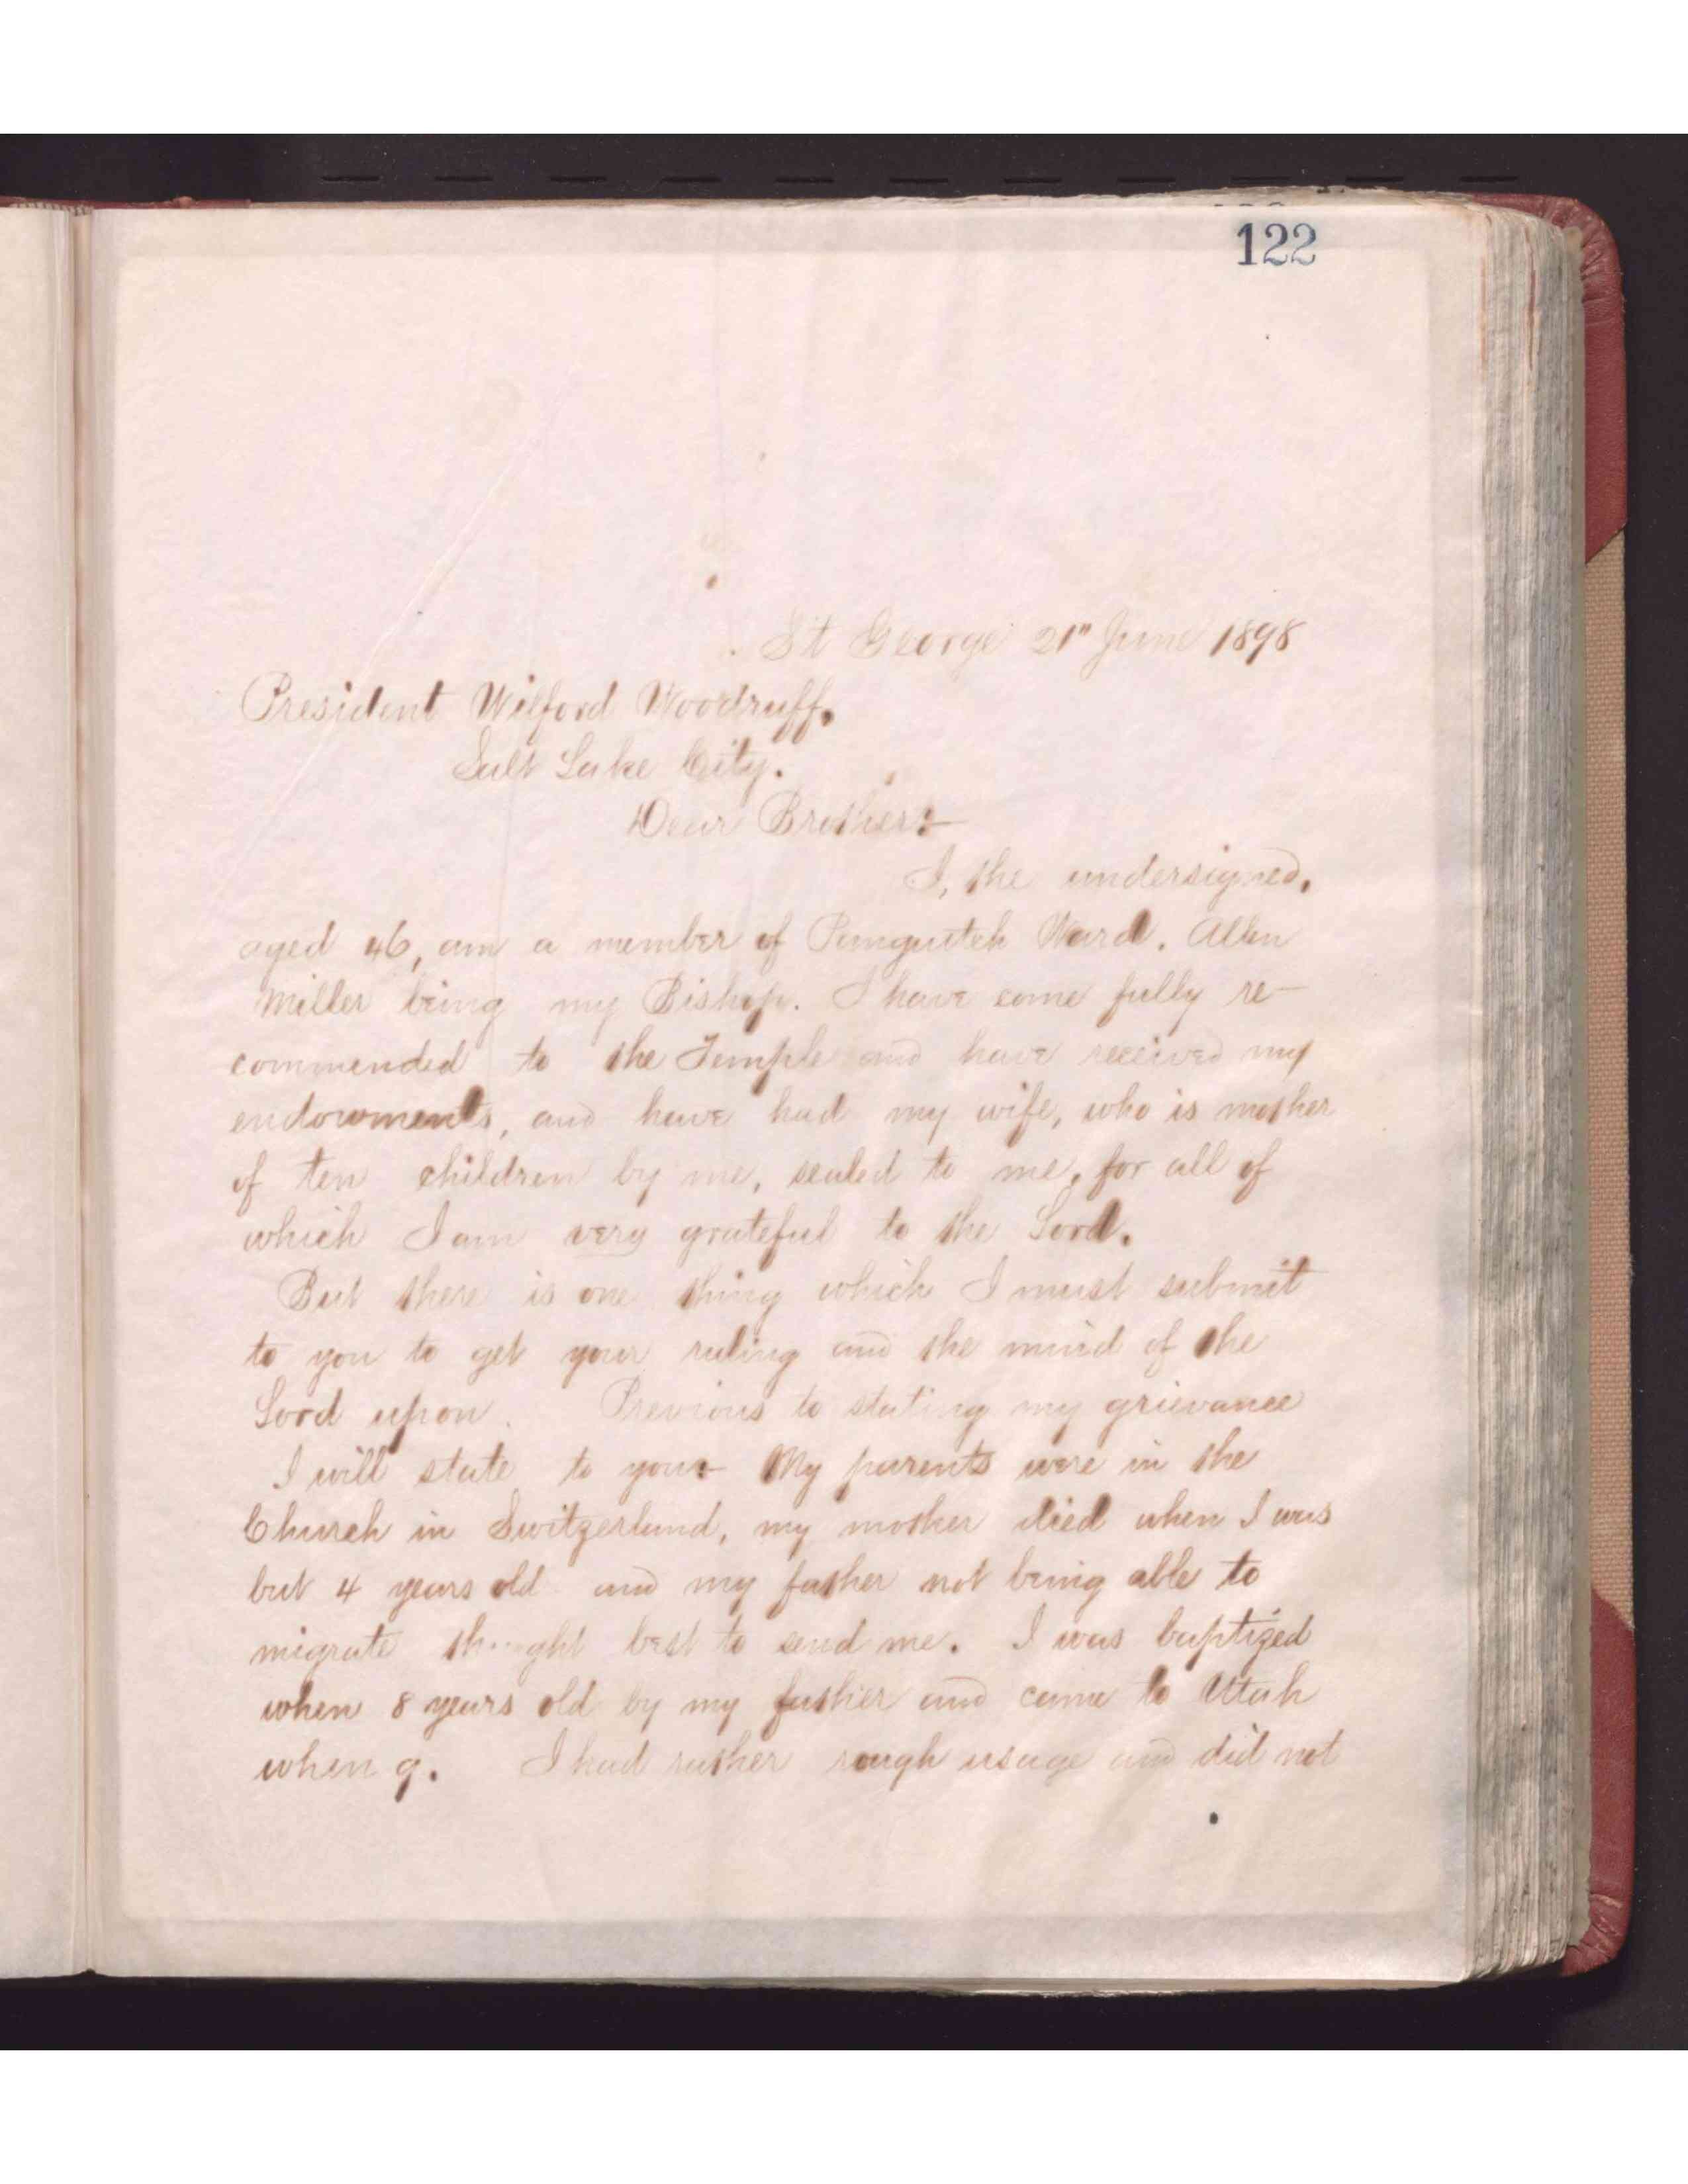 122
St George 21" June 1898
President Wilford Woodruff.
Salt Lake City.
Dear Brother:—
I, the undersigned,
aged 46, am a member of Panguitch Ward. Allen
Miller being my Bishop. I have come fully re-
commended to the Temple and have received my
endowments, and have had my wife, who is mother
of ten children by me, sealed to me, for all of
which I am very grateful to the Lord.
But there is one thing which I must submit
to you to get your ruling and the mind of the
Lord upon. Previous to stating my grievance
I will state to you:— My parents were in the
Church in Switzerland, my mother died when I was
but 4 years old and my father not being able to
migrate thought best to send me. I was baptized
when 8 years old by my father and came to Utah
when 9. I had rather rough usage and did not